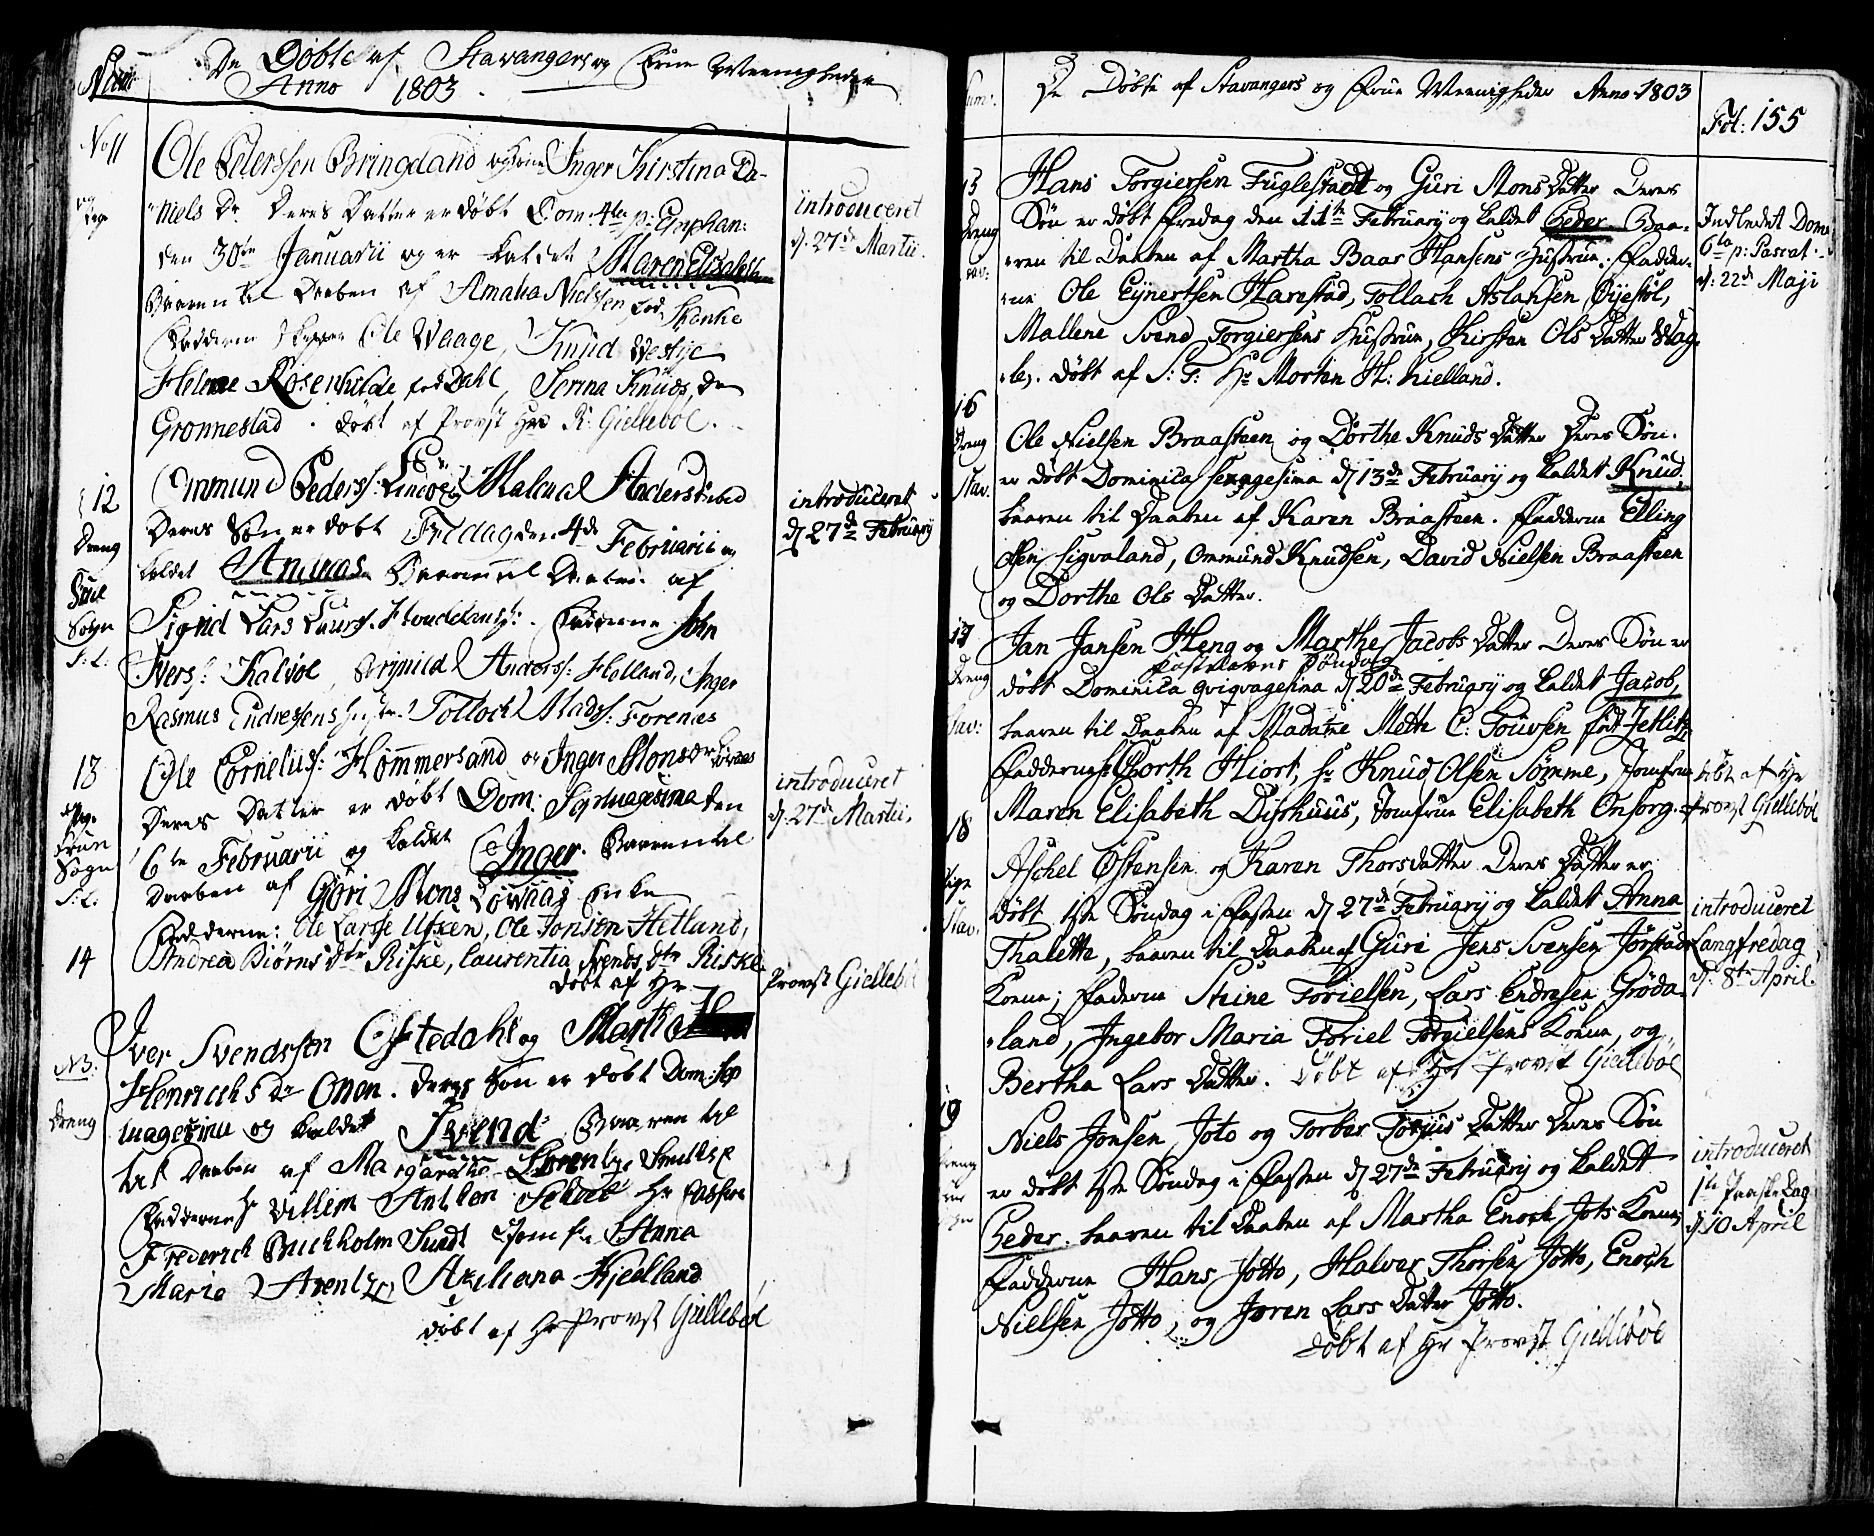 Num:
De Døbte af Stavangers og Frue Meenigheder
Anno 1803.
No 11
Pige
Ole Pederssen Bringeland og Kone Inger Kirstina Da-
niels Dr. Deres Datter er døbt Dom: 4ta p: Epiphan:
den 30te Januarii og er kaldet Maren Elisabeth
Baaren til Daaben af Amalia Nielssen fød Schenke
Fadderne Skipper Ole Waage, Knud Westlye
Helene Rosenkilde fød Dahl, Serina Knuds Dr
Gronnestad. døbt af Provst Hr R: Giellebøl.
introduceret
d. 27de Martii.
12
Dreng
Frue
Sogn
S: L:
Ommund Pederss: og Malena Andersdr
Deres Søn er døbt Fredag den 4de Februarii og
kaldet Andreas Baaren til Daaben af
Sigrid Lars Laurs.
Fadderne John
Ivers: Kalvøe, Anderss: Helland, Inger
Rasmus Endressens hustr: Tolloch Madss: Forenæs
introduceret
d 27de Februarij
13
Pige
Frue
Sogn
S: L:
Ole Corneliuss: Hommersand og Inger Monsdr
Deres Datter er døbt Dom: Septuagesima den
6te Februarii og kaldet Inger. Baaren til
Daaben af Giøri Mons Enke
Fadderne: Ole Larsse Ufken, Ole Jonsen Hetland,
Andrea Biørns dtr Riske, Laurentia Svends dtr Riske
døbt af Hr Provst Giellebøl
introduceret
d. 27de Martii.
14
NB:
Dreng
Iver Svendssen Oftedahl og Martha
Henrichs dr Onen. deres Søn er døbt Dom: Sep
tuagesima og kaldet Svend Baaren til
til Daaben af Margarethe
Fadderne Hr Villem Hr
Frederich Buchholm Sundt Jomfr: Anna
Maria Arentz, Axeliana Kjelland
døbt af Hr Provst Giellebøl
Num:
De Døbte af Stavangers og Frue Meenigheder Anno 1803
Fol: 155
15
Dreng
Stav:
Hans Torgiersen Fuglestad og Guri Mons Datter Deres
Søn er døbt Fredag den 11te Februarij og kaldet Peder Baa-
ren til Daaben af Martha Baar Hansens Hustrue. Fadder-
ne Ole Ejnertsen Harestad, Tollach Aslaksen Øyestøl,
Mallene Svend Torgiersens Hustrue, Kirsten Ols Datter Wag
le. døbt af S: T: Hr Morten H: Kielland.
Indledet Dom:
6ta p: Pascat.
d: 22de Maji
16
Dreng
Stav.
Ole Nielsen Braasteen og Dorthe Knuds Datter Deres Søn.
er døbt Dominica sexagesima d 13de Februarij og kaldet Knud,
baaren til Daaben af Karen Braasteen. Fadderne Elling
Olsen Sigvaland, Ommund Knudsen, David Nielsen Braasteen
og Dorthe Ols Datter.
17
Dreng
Stav:
Jan Jansen Heng og Marthe Jacobs Datter Deres Søn er
Fastelavens Søndag
døbt Dominica qvigvagesima d 20de Februarij og kaldet Jacob,
baaren til Daaben af Madame Meth C: Touvsen født Jetlitz
Fadderne Hiort, Hr Knud Olsen Sømme, Jomfrue
Maren Elisabeth Disthuus, Jomfrue Elisabeth Onsorg.
døbt af Hr
Provst Giellebøl
18
Pige
Stav.
Aschel Østensen og Karen Thorsdatter Deres Datter er
døbt 1ste Søndag i Fasten d 27de Februarij og kaldet Anna
Thalette, baaren til Daaben af Guri Jens Svensen Jorstads
Kone; Faderne Stine Torielsen, Lars Endresen Grøda-
land, Ingebor Maria Toriel Torgielsens Kone, og
Bertha Lars Datter. døbt af Hr Provst Giellebøl
introduceret
Langfredag
d. 8te April.
19
Dreng
Niels Jonsen Joto og Torber Torjus Datter Deres Søn
er døbt 1ste Søndag i Fasten d 27de Februarij og kaldet
Peder. baaren til Daaben af Martha Enoch Jots Kone,
Fadderne Hans Jotto, Halvor Thorsen Jotto, Enoch
Nielsen Jotto, og Joren Lars Datter Jotto.
døbt af Hr Provst Giellebøl
introduceret
1te Paaske Dag
d 10 April